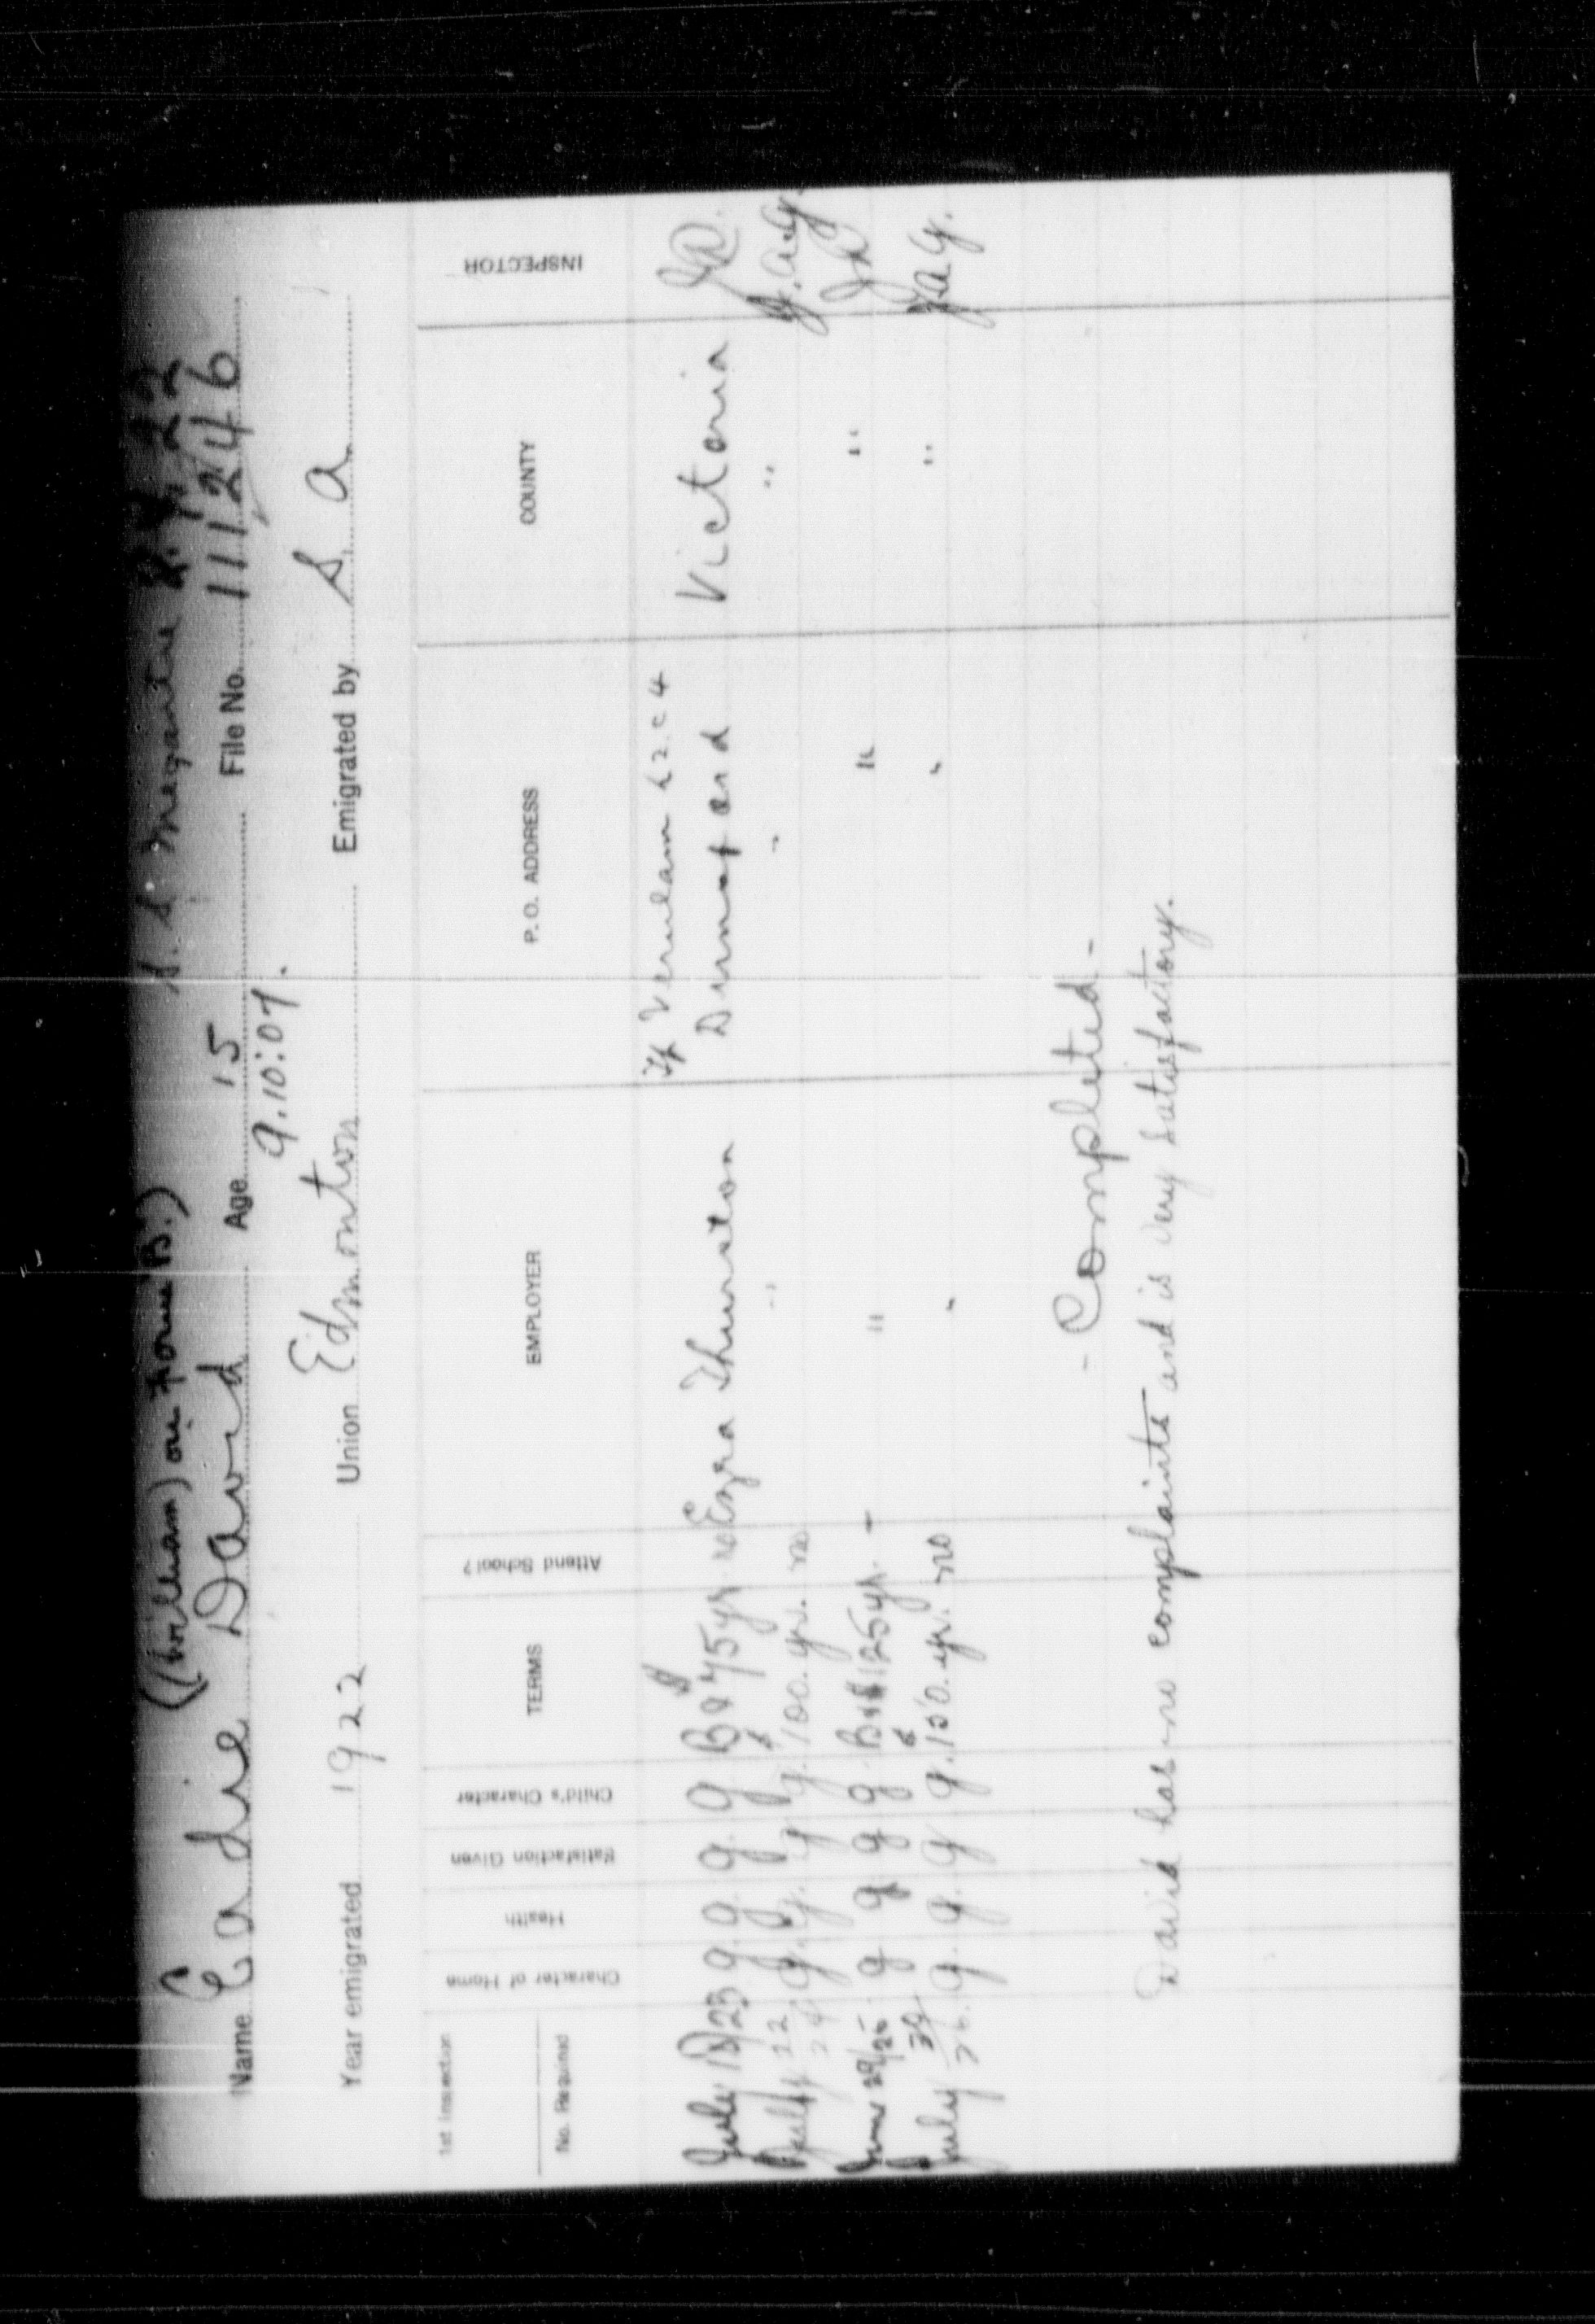 (William) on form B.) S. S. Megantic 2. 9. 22
Name Eadie David Age 15 File No. 111246
9.10:07.
Year emigrated 1922 Union Edmonton Emigrated by S. A
1st Inspection
No. Required
Character of Home
Health
Satisfaction Given
Child's Character
TERMS
Attend School?
EMPLOYER
P. O. ADDRESS
COUNTY
INSPECTOR
Tp Verulam L 2 C 4
July 18/23 g. g. g. g B & $75 yr no Ezra Thurston Dunsford Victoria
July 22 24 g. g. g g. $100. yr. no " " " J.A.G.
June 29/25 g g g g B&$125 yr. - " " "
July 26. g. g. g g. $150. yr. no " " " J a G.
- Completed -
David has no complaints and is very satisfactory.